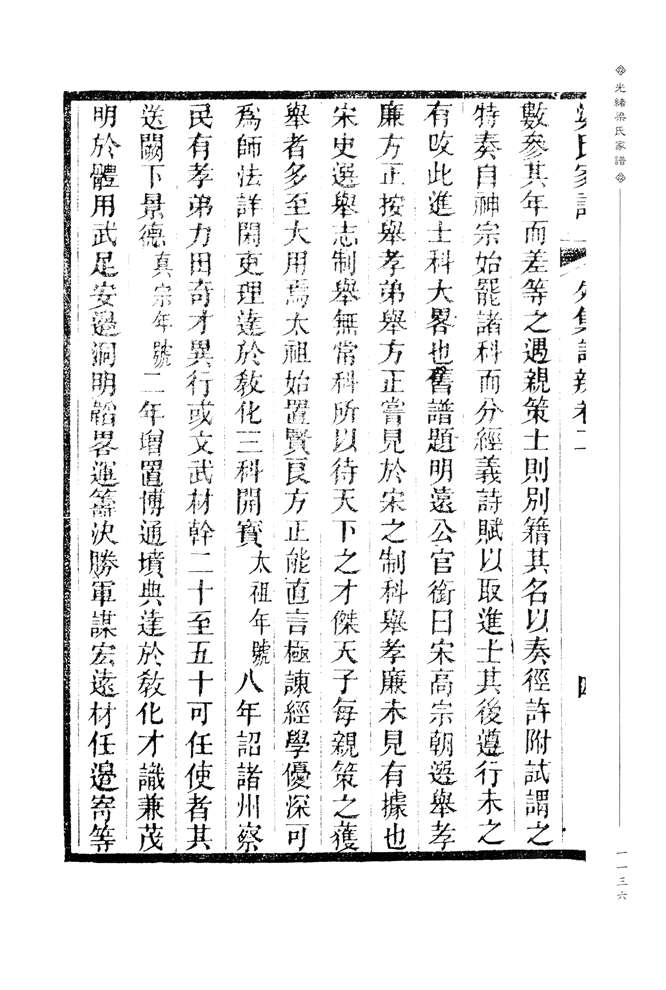 光緒梁氏家譜
一一三六
梁氏家譜 外集譜辨卷二 四
數參其年而差等之遇親策士則別籍其名以奏徑許附試謂之
特奏自神宗始罷諸科而分經義詩賦以取進士其後遵行未之
有攺此進士科大畧也舊譜題明遠公官銜曰宋高宗朝選舉孝
廉方正按舉孝弟舉方正嘗見於宋之制科舉孝廉未見有據也
宋史選舉志制舉無常科所以待天下之才傑天子每親策之獲
舉者多至大用焉太祖始置賢良方正能直言極諫經學優深可
爲師法詳閑吏理達於敎化三科開寳太祖年號八年詔諸州察
民有孝弟力田奇才異行或文武材幹二十至五十可任使者其
送闕下景德真宗年號二年增置博通墳典達於敎化才識兼茂
明於體用武足安邊洞明韜畧運籌決勝軍謀宏遠材任邊寄等